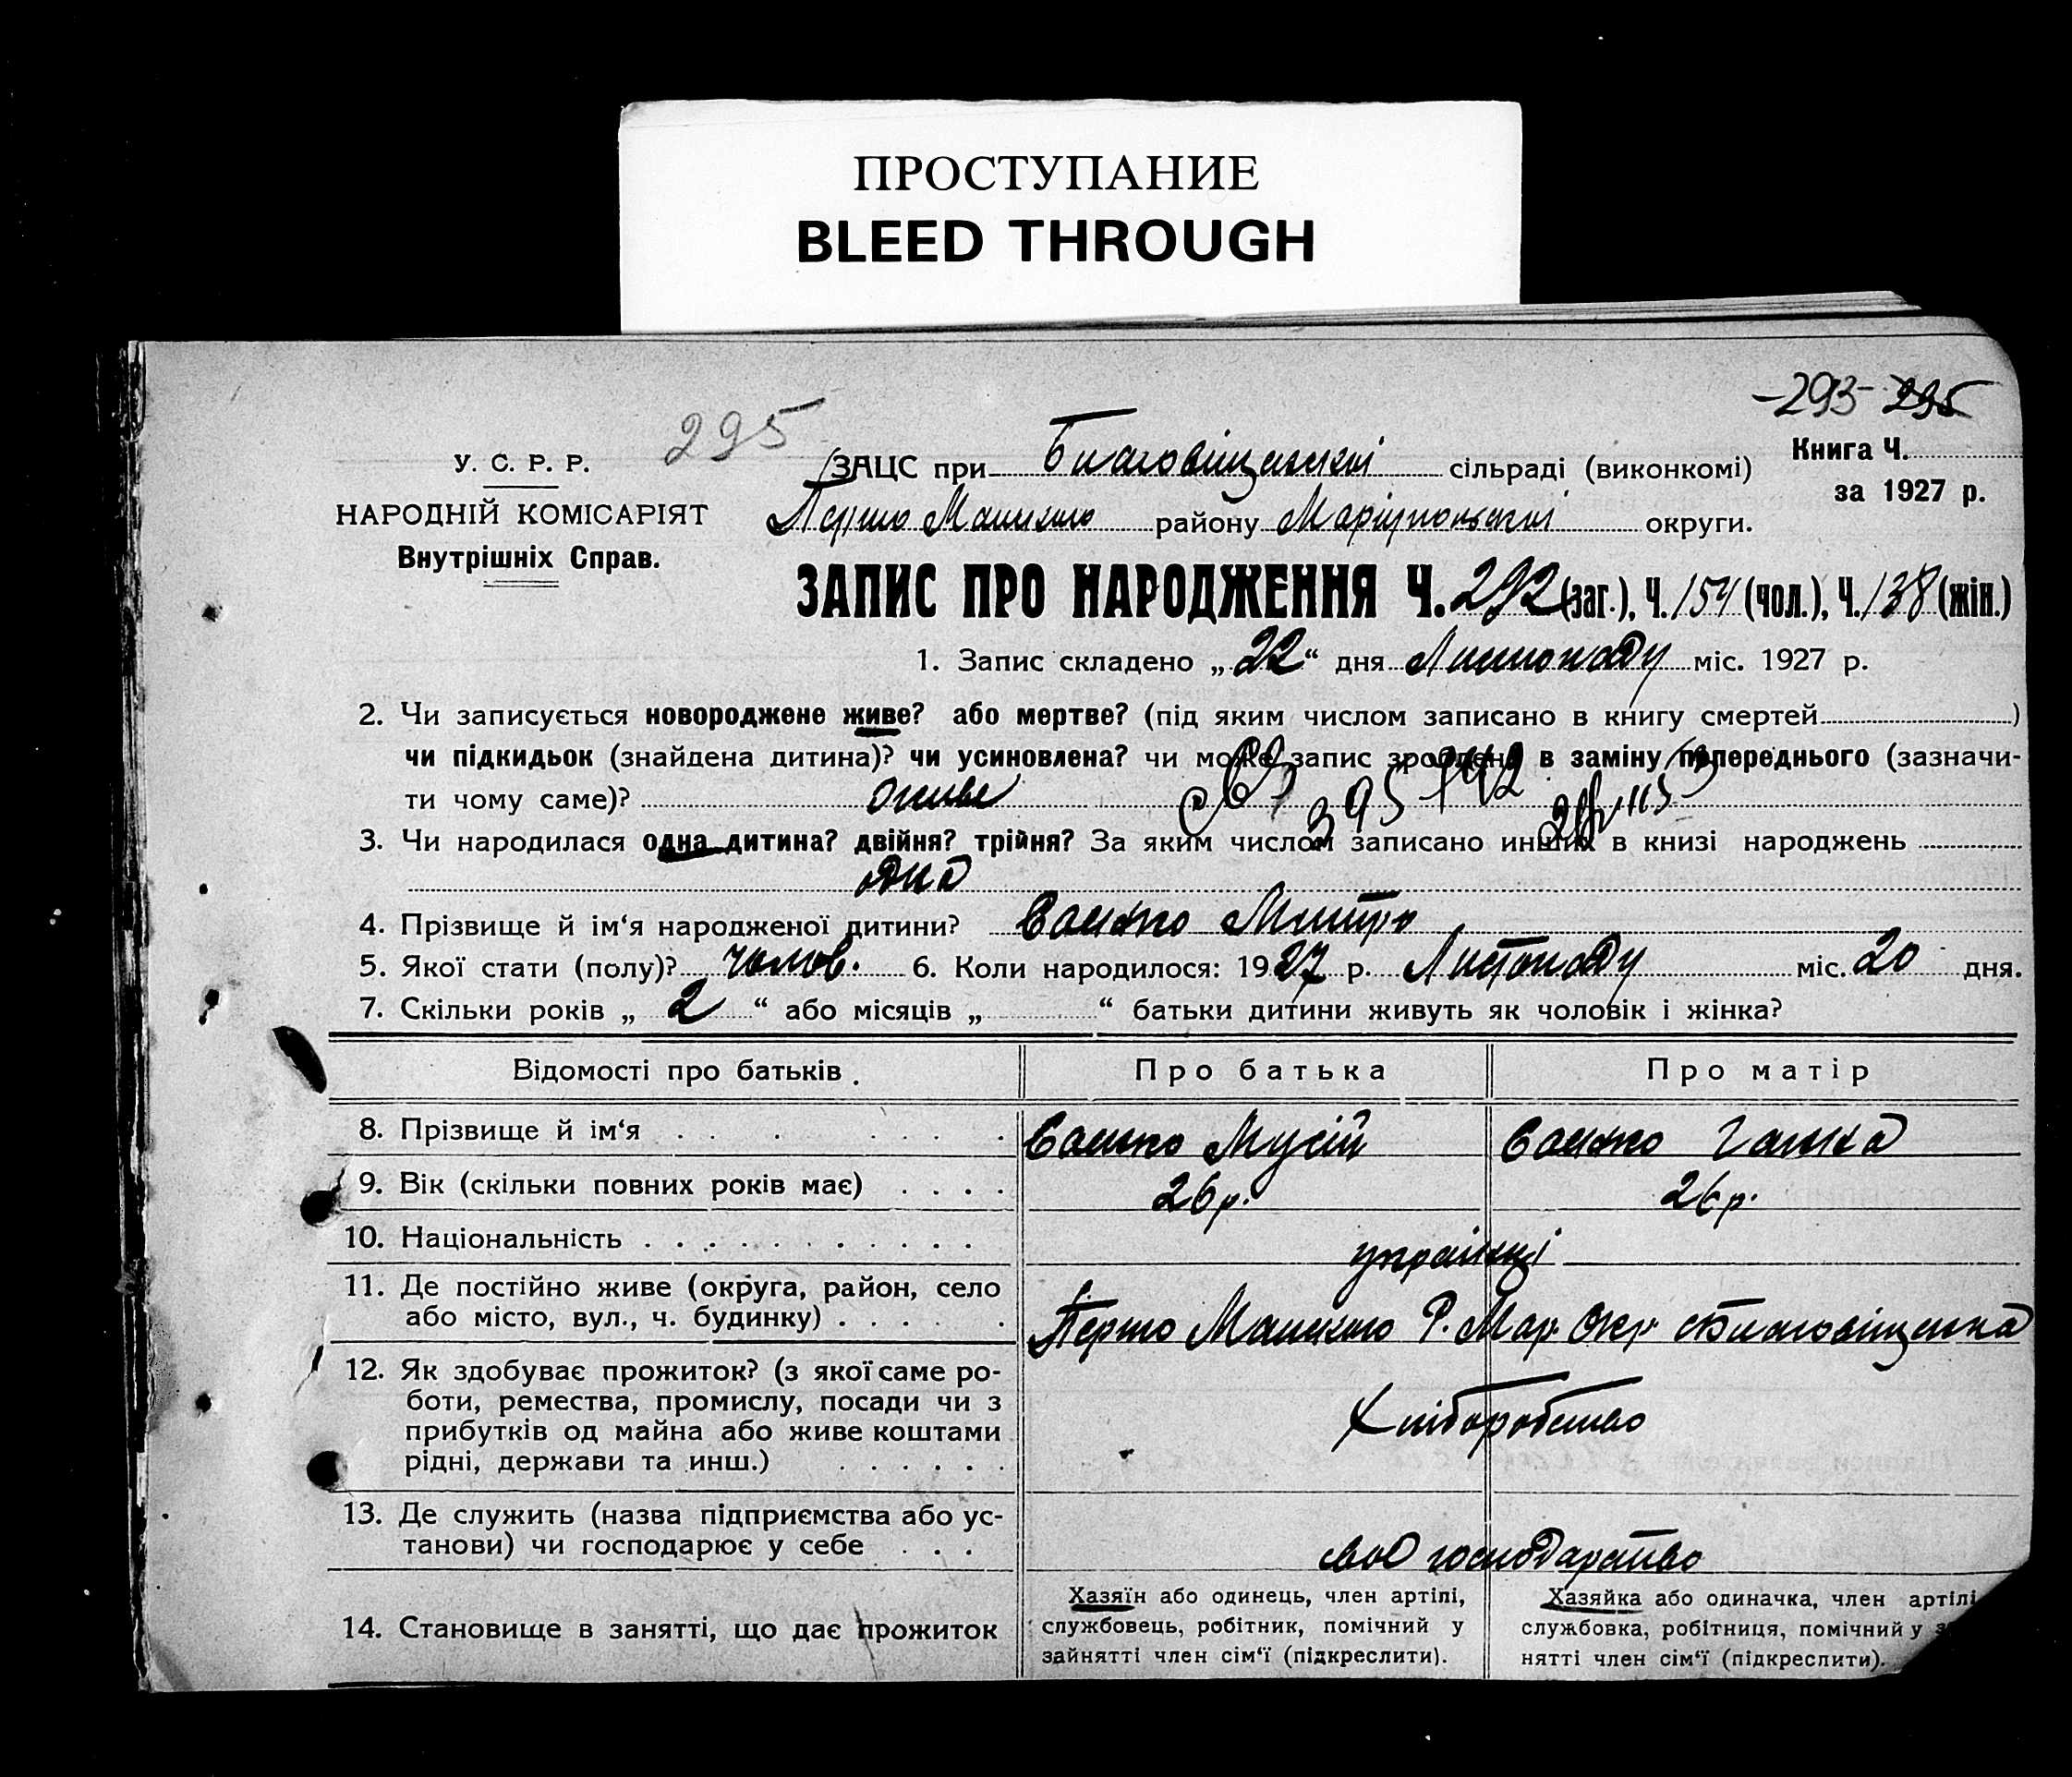 ПРОСТУПАНИЕ
BLEED THROUGH
-293- 295
295
У. С. Р. Р.
НАРОДНІЙ КОМІСАРІЯТ
Внутрішніх Справ.
ЗАЦС при Благовіщенській сільраді (виконкомі)
Книга Ч.
за 1927 р.
району Маріупольської округи.
ЗАПИС ПРО НАРОДЖЕННЯ Ч. 292 (заг.), Ч. 154 (чол.), Ч. 138 (жін.)
1. Запис складено „ 22 “ дня Листопаду міс. 1927 р.
2. Чи записується новороджене живе? або мертве? (під яким числом записано в книгу смертей )
чи підкидьок (знайдена дитина)? чи усиновлена? чи може запис зроблено в заміну попереднього (зазначи-
ти чому саме)? живе
3. Чи народилася одна дитина? двійня? трійня? За яким числом записано инших в книзі народжень
одна
4. Прізвище й ім‘я народженої дитини? Сашко Митро
5. Якої стати (полу)? чолов. 6. Коли народилося: 1927 р. Листопаду міс. 20 дня.
7. Скільки років „ 2 “ або місяців „ “ батьки дитини живуть як чоловік і жінка?
Відомості про батьків. Про батька Про матір
8. Прізвище й ім‘я Сашко Мусій Сашко Ганна
9. Вік (скільки повних років має) 26 р. 26 р.
10. Національність українці
11. Де постійно живе (округа, район, село
або місто, вул., ч. будинку) Р. Мар. Окр. с Благовіщенка
12. Як здобуває прожиток? (з якої саме ро-
боти, ремества, промислу, посади чи з
прибутків од майна або живе коштами
рідні, держави та инш.) Хліборобство
13. Де служить (назва підприємства або ус-
танови) чи господарює у себе своє господарство
14. Становище в занятті, що дає прожиток
Хазяїн або одинець, член артілі,
службовець, робітник, помічний у
зайнятті член сім‘ї (підкреслити).
Хазяйка або одиначка, член артілі
службовка, робітниця, помічний у
нятті член сім‘ї (підкреслити).